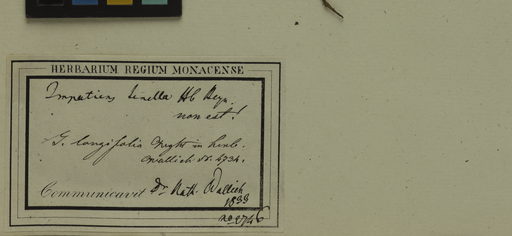 HERBARIUM REGIUM MONACENSE
Impatiens tenella Hb Heyn.
non est!
I. longifolia Wight in herb.
Wallich n. 4734.
Communicavit Dr. Nath. Wallich
1833
no 4746